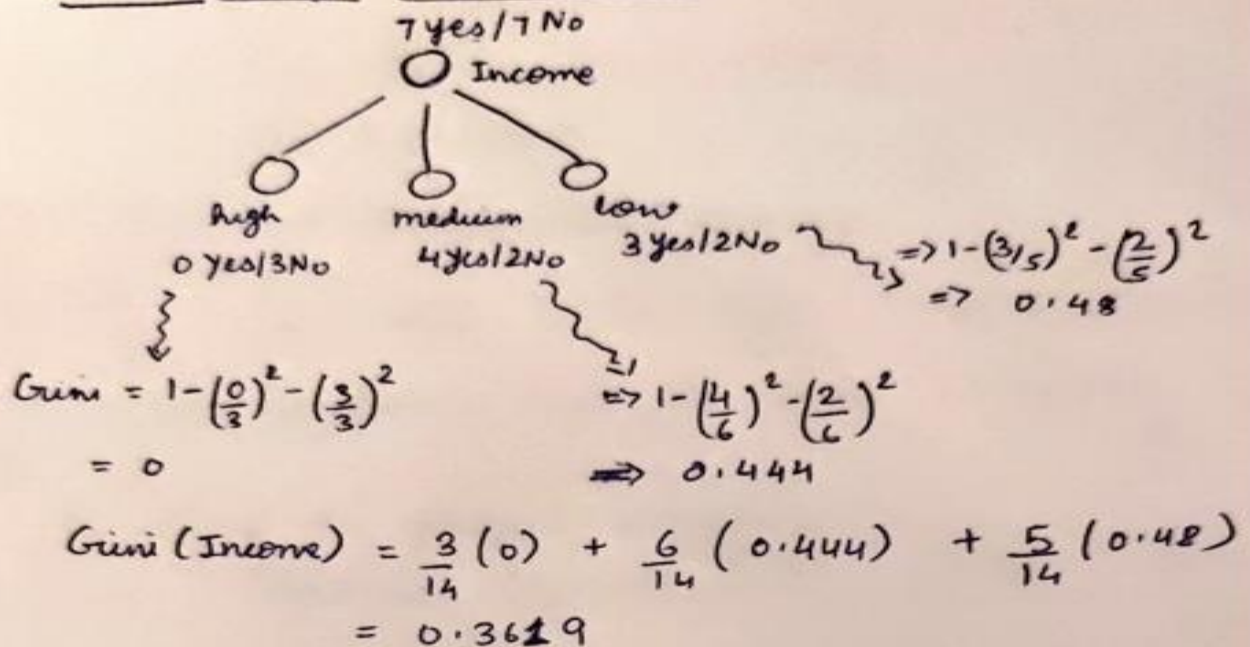 7 yes / 7 No
Income
high
medium
low
0 yes/3No
4yes/2No
3 yes/2No
=> 1-(3/5)² - (2/5)²
=> 0.48
Gini = 1-(0/3)² - (3/3)²
= 0
=> 1-(4/6)² - (2/6)²
=> 0.444
Gini (Income) = 3/14 (0) + 6/14 (0.444) + 5/14 (0.48)
= 0.3619